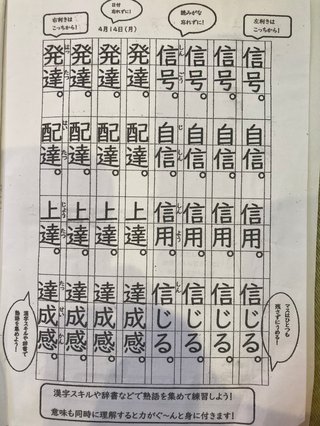 右利きは
こっちから!
日付
忘れずに!
4月14日(月)
読みがな
忘れずに!
左利きは
こっちから!
信号。自信。信用。信じる。
信号。自信。信用。信じる。
信号。自信。信用。信じる。
しんごう しん しんよう しん
信号。自信。信用。信じる。
発達。配達。上達。達成感。
発達。配達。上達。達成感。
発達。配達。上達。達成感。
はったつ はいたつ じょうたつ たっせいかん
発達。配達。上達。達成感。
マスはひとつも
残さずにうめる!
漢字スキルや辞書で
熟語を集めよう!
漢字スキルや辞書などで熟語を集めて練習しよう!
意味も同時に理解すると力がぐ~んと身に付きます!